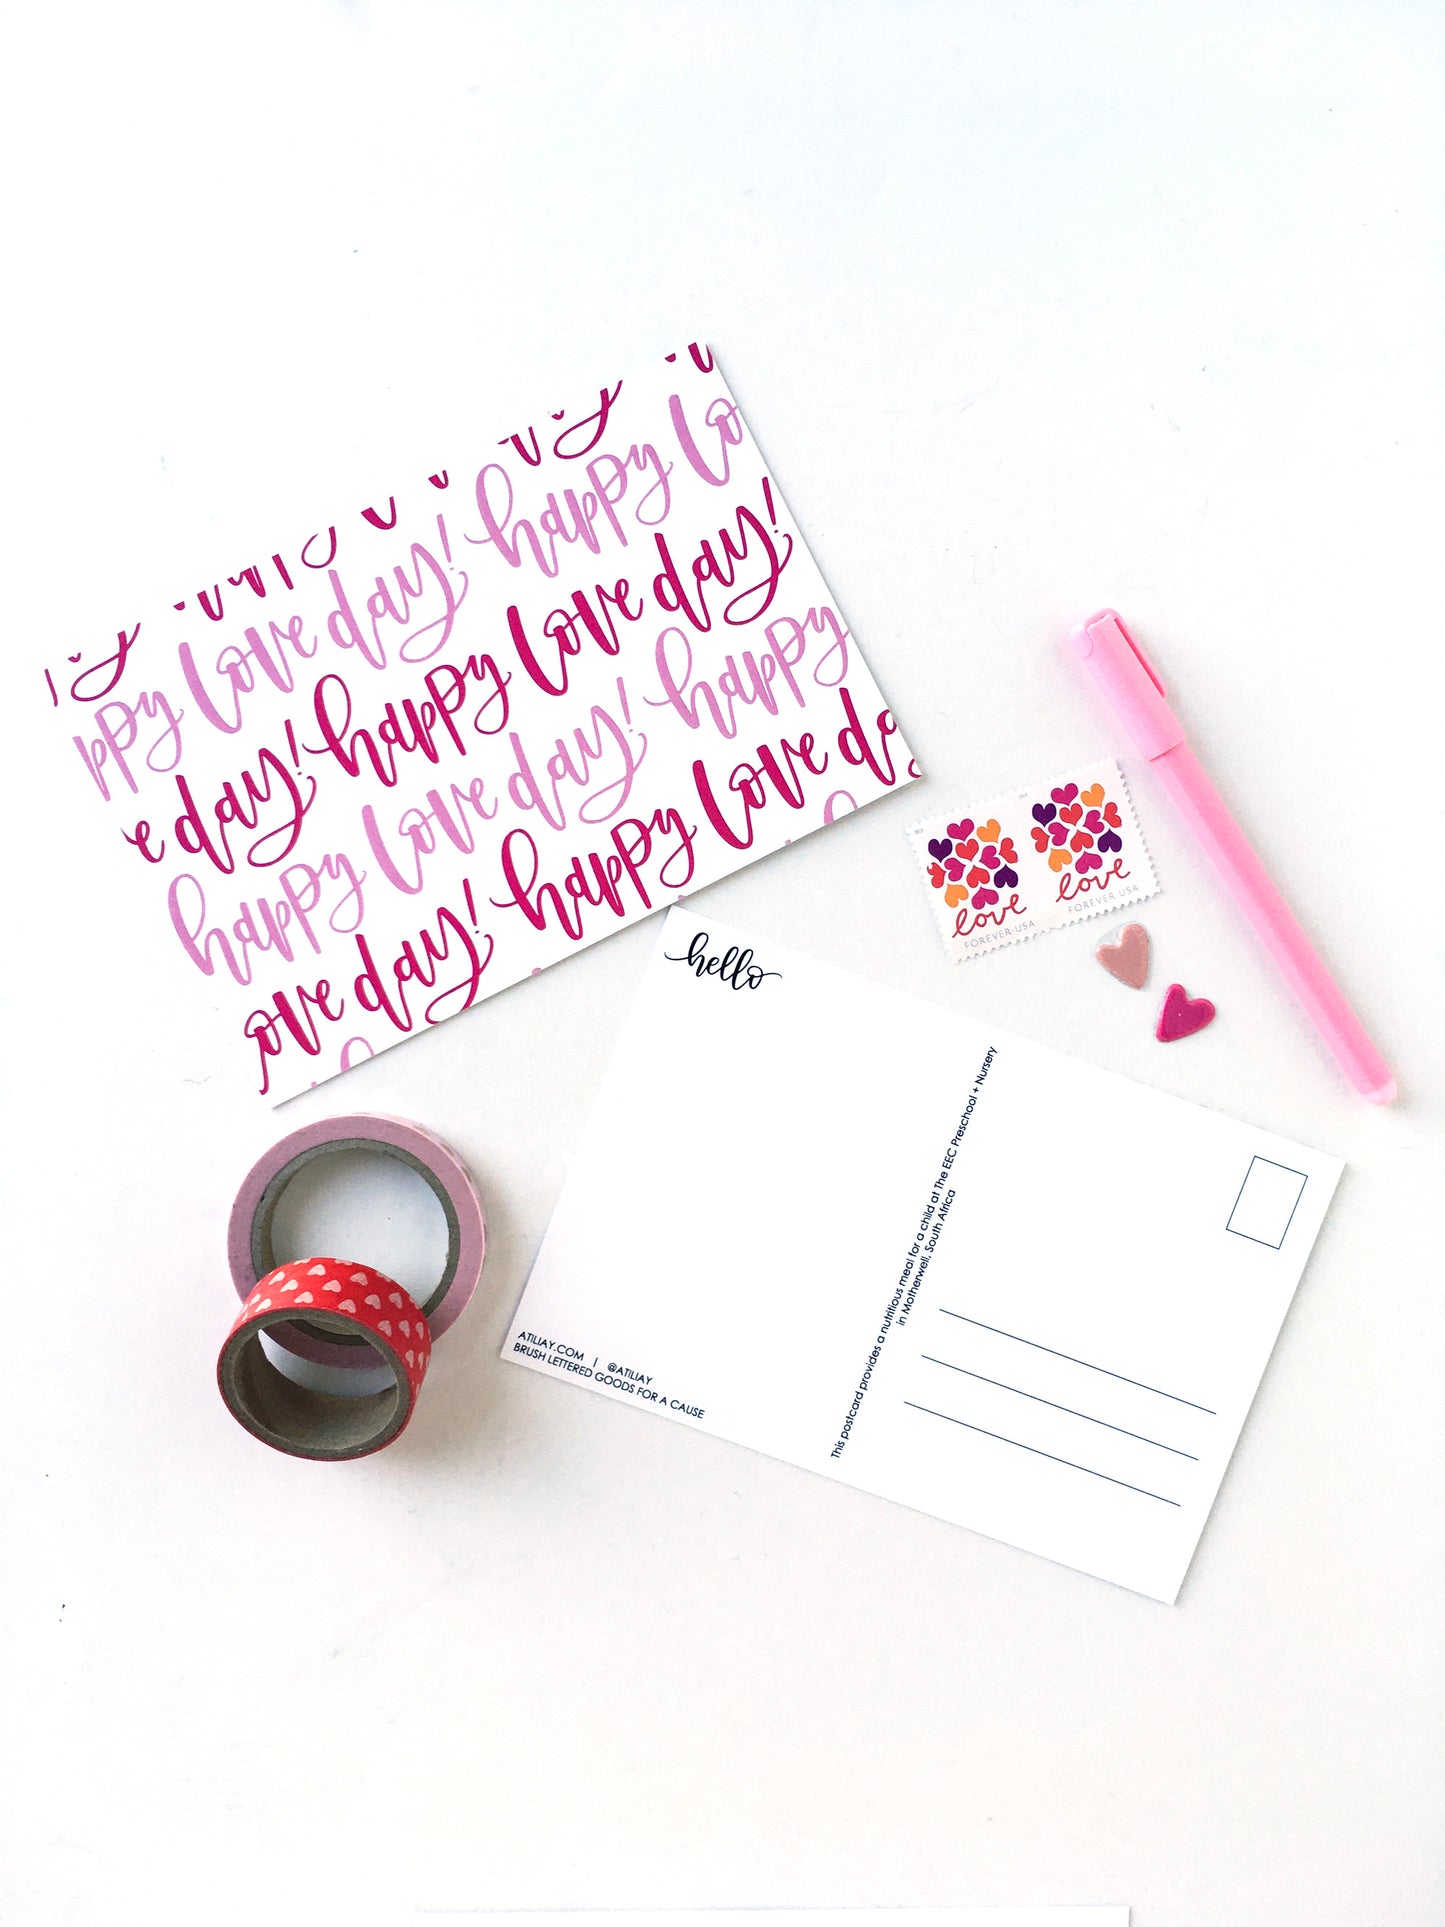 lo
ppy love day! happy lo
e day! happy love day!
happy love day! happy
ove day! happy love da
love
FOREVER·USA
love
FOREVER·USA
hello
This postcard provides a nutritious meal for a child at The EEC Preschool + Nursery
in Motherwell, South Africa
ATILIAY.COM | @ATILIAY
BRUSH LETTERED GOODS FOR A CAUSE